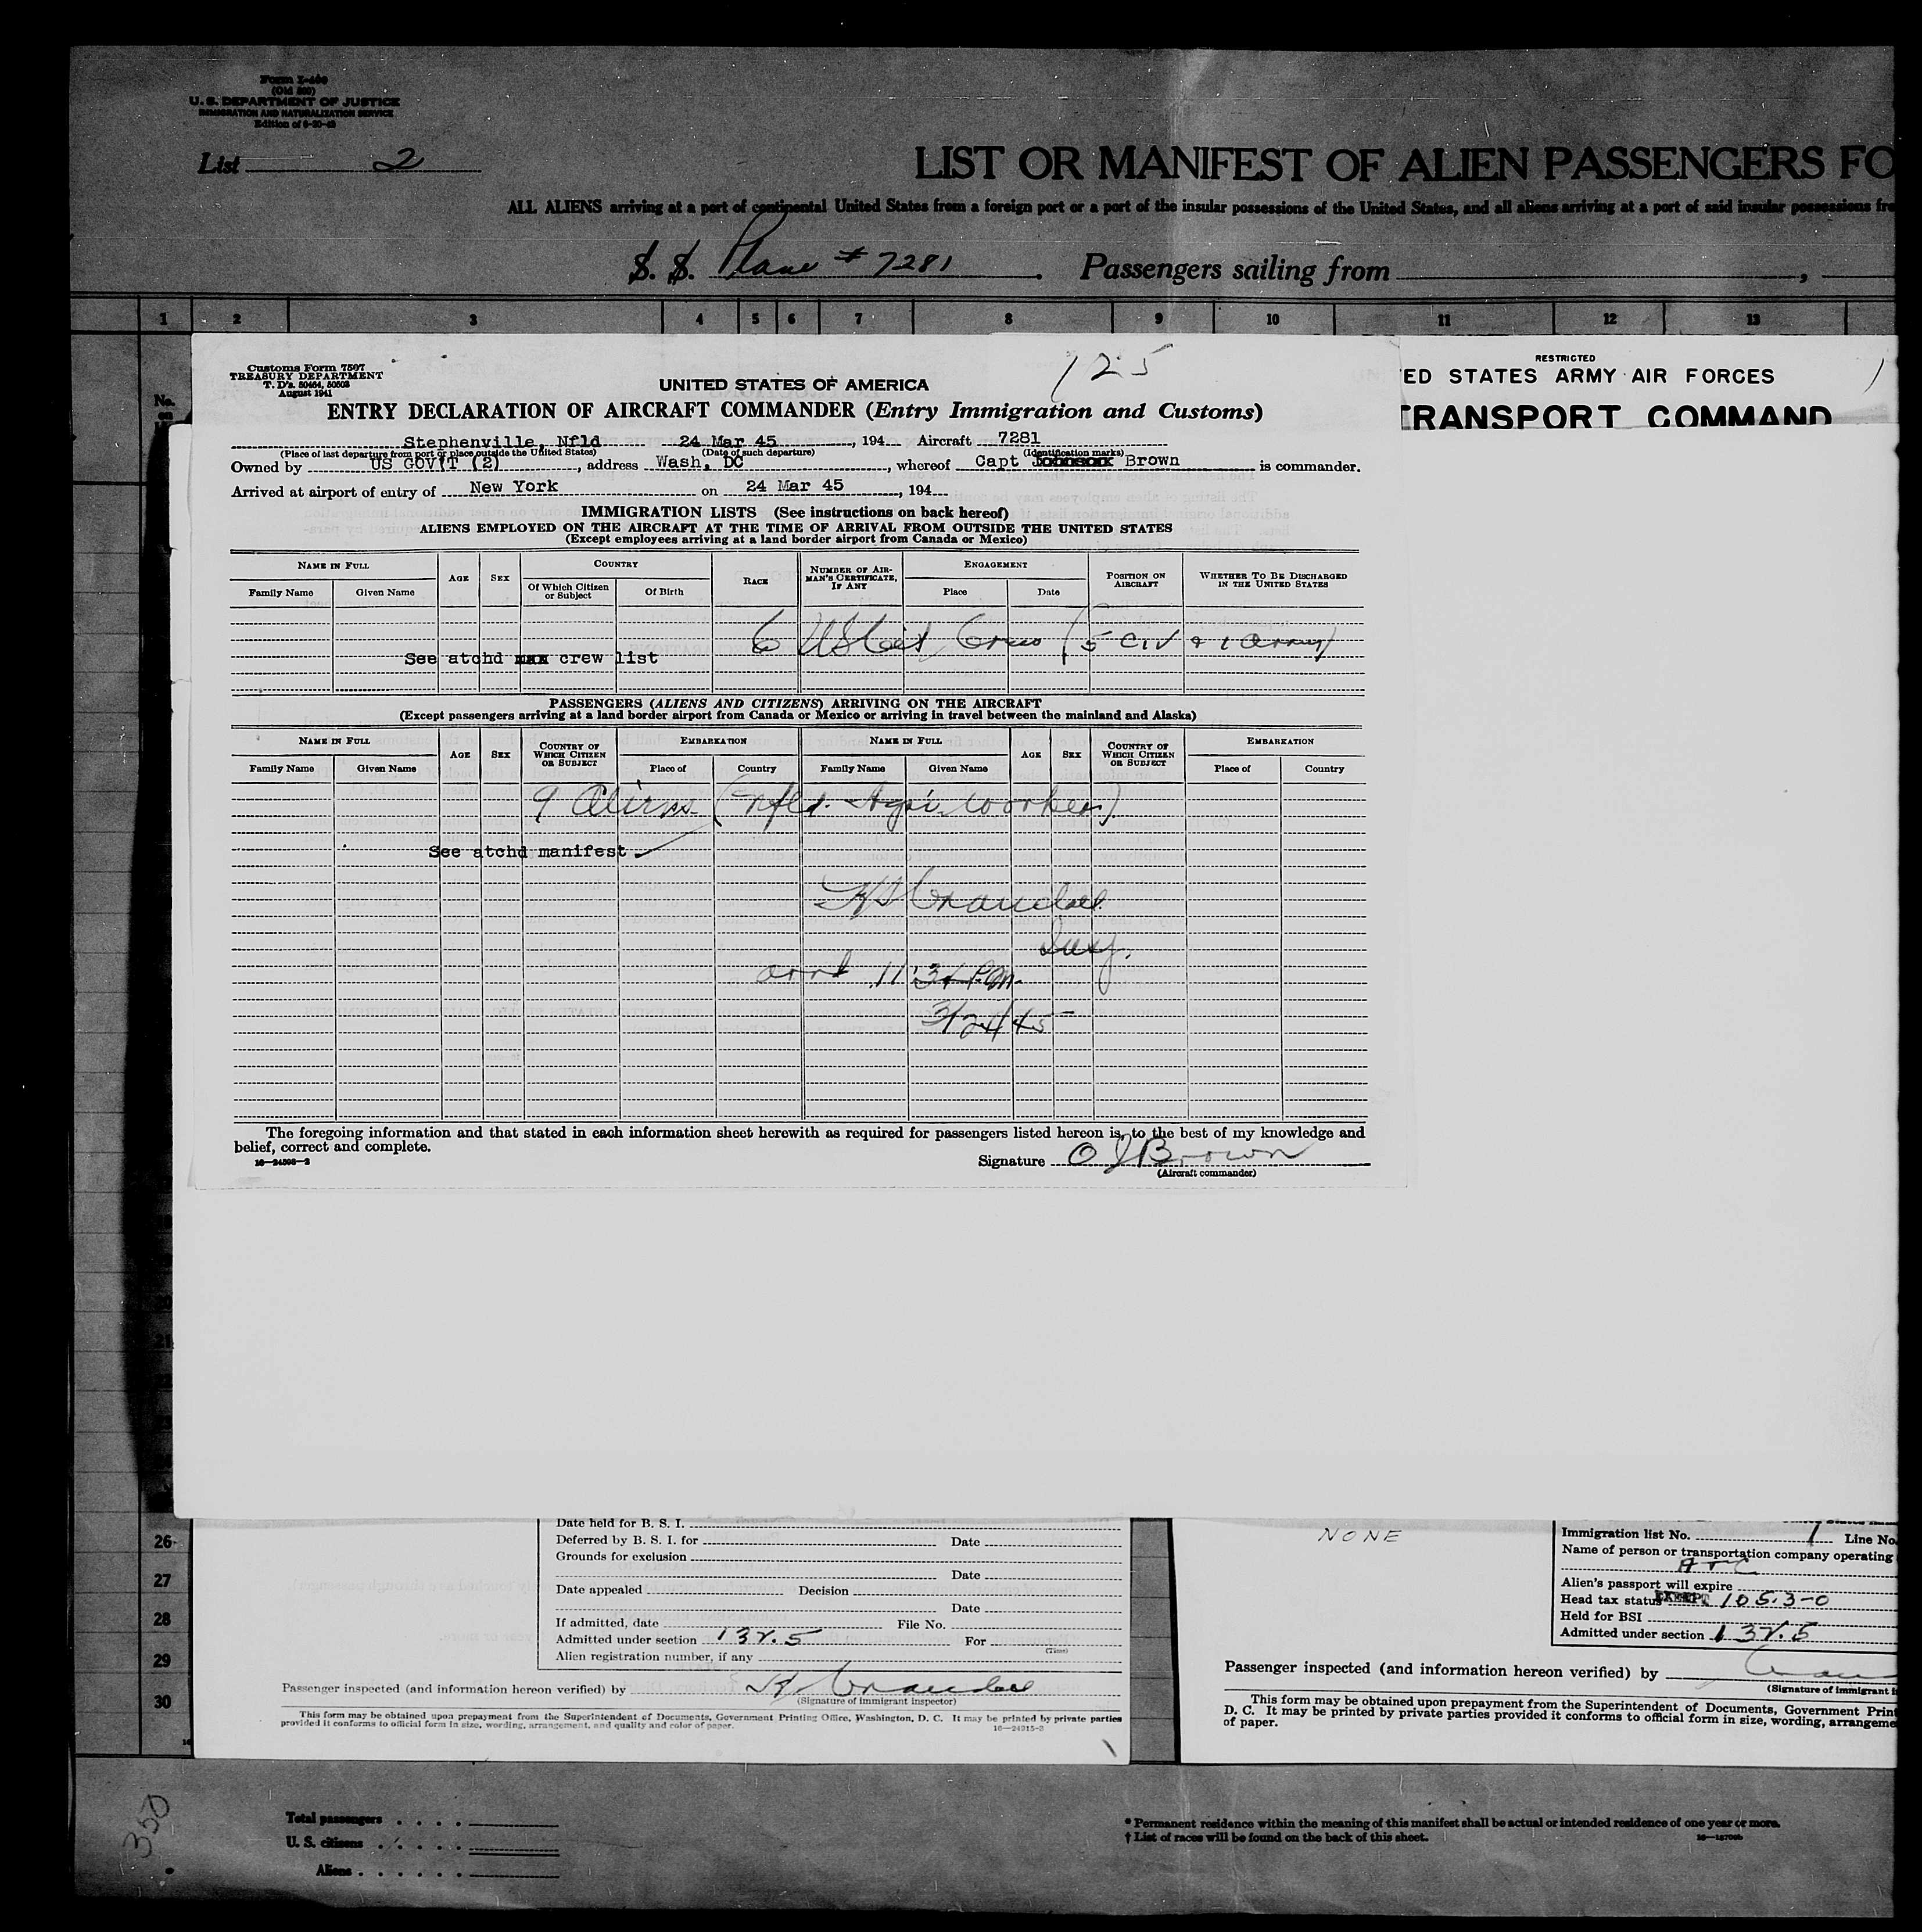 Form I-466
(Old 500)
U. S. DEPARTMENT OF JUSTICE
IMMIGRATION AND NATURALIZATION SERVICE
List 2
LIST OR MANIFEST OF ALIEN PASSENGERS FO
ALL ALIENS arriving at a port of continental United States from a foreign port or a port of the insular possessions of the United States, and all aliens arriving at a port of said insular possessions fr
S. S. Plane # 7281. Passengers sailing from
1 2 3 4 5 6 7 8 9 10 11 12 13
No.
on
Customs Form 7507
TREASURY DEPARTMENT
T. D's. 50464, 50503
August 1941
125
UNITED STATES OF AMERICA
ENTRY DECLARATION OF AIRCRAFT COMMANDER (Entry Immigration and Customs)
RESTRICTED
ED STATES ARMY AIR FORCES
TRANSPORT COMMAND
Stephenville, Nfld 24 Mar 45, 194 Aircraft 7281
(Place of last departure from port or place outside the United States) (Date of such departure) (Identification marks)
Owned by US GOV'T (2), address Wash, DC, whereof Capt Johnson Brown is commander.
Arrived at airport of entry of New York on 24 Mar 45, 194
IMMIGRATION LISTS (See instructions on back hereof)
ALIENS EMPLOYED ON THE AIRCRAFT AT THE TIME OF ARRIVAL FROM OUTSIDE THE UNITED STATES
(Except employees arriving at a land border airport from Canada or Mexico)
NAME IN FULL AGE SEX COUNTRY RACE NUMBER OF AIRMAN'S CERTIFICATE, IF ANY ENGAGEMENT POSITION ON AIRCRAFT WHETHER TO BE DISCHARGED IN THE UNITED STATES
Family Name Given Name Of Which Citizen or Subject Of Birth Place Date
6 US Cit Crew (5 Civ & 1 Army)
See atchd crew list
PASSENGERS (ALIENS AND CITIZENS) ARRIVING ON THE AIRCRAFT
(Except passengers arriving at a land border airport from Canada or Mexico or arriving in travel between the mainland and Alaska)
NAME IN FULL AGE SEX COUNTRY OF WHICH CITIZEN OR SUBJECT EMBARKATION NAME IN FULL AGE SEX COUNTRY OF WHICH CITIZEN OR SUBJECT EMBARKATION
Family Name Given Name Place of Country Family Name Given Name Place of Country
9 Aliens (Nfld. Agri. Workers)
See atchd manifest
Crandall
Insp.
arrd 11:34 P.M.
3/24/45
The foregoing information and that stated in each information sheet herewith as required for passengers listed hereon is, to the best of my knowledge and
belief, correct and complete.
16—24596—2
Signature O J Brown
(Aircraft commander)
26
27
28
29
30
Date held for B. S. I.
Deferred by B. S. I. for Date
Grounds for exclusion
Date
Date appealed Decision
Date
If admitted, date File No.
Admitted under section 132.5 For
(Time)
Alien registration number, if any
Passenger inspected (and information hereon verified) by Crandall
(Signature of immigrant inspector)
This form may be obtained upon prepayment from the Superintendent of Documents, Government Printing Office, Washington, D. C. It may be printed by private parties
provided it conforms to official form in size, wording, arrangement, and quality and color of paper. 16—24915-2
NONE
Immigration list No. 1 Line No.
Name of person or transportation company operating
ATC
Alien's passport will expire
Head tax status EXEMPT 105.3-0
Held for BSI
Admitted under section 132.5
Passenger inspected (and information hereon verified) by
(Signature of immigrant i
This form may be obtained upon prepayment from the Superintendent of Documents, Government Print
D. C. It may be printed by private parties provided it conforms to official form in size, wording, arrangeme
of paper.
350
Total passengers
U. S. citizens
Aliens
* Permanent residence within the meaning of this manifest shall be actual or intended residence of one year or more.
† List of races will be found on the back of this sheet.